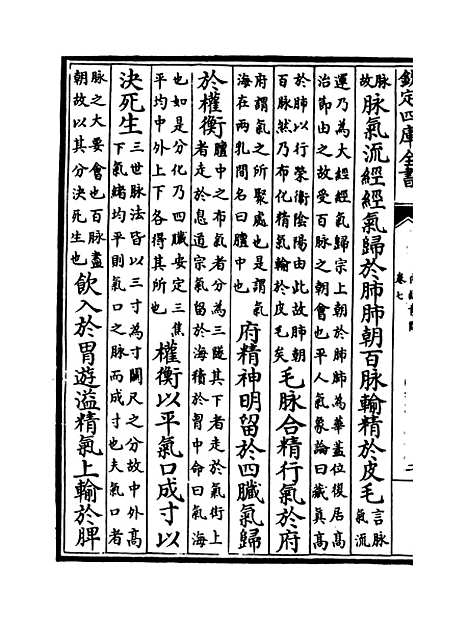 欽定四庫全書
卷七
脈故脈氣流經經氣歸於肺肺朝百脈輸精於皮毛言脈氣流
運乃為大經經氣歸宗上朝於肺肺為華蓋位復居高治節由之故受百脈之朝會也平人氣象論曰藏真高
於肺以行榮衛陰陽由此故肺朝百脈然乃布化精氣輸於皮毛矣毛脈合精行氣於府
府謂氣之所聚處也是謂氣海在兩乳間名曰膻中也府精神明留於四臟氣歸
於權衡膻中之布氣者分為三隧其下者走於氣街上者走於息道宗氣留於海積於胷中命曰氣海
也如是分化乃四臟安定三焦平均中外上下各得其所也權衡以平氣口成寸以
決死生三世脈法皆以三寸為寸關尺之分故中外高下氣緒均平則氣口之脈而成寸也夫氣口者
脈之大要會也百脈盡朝故以其分決死生也飲入於胃遊溢精氣上輸於脾